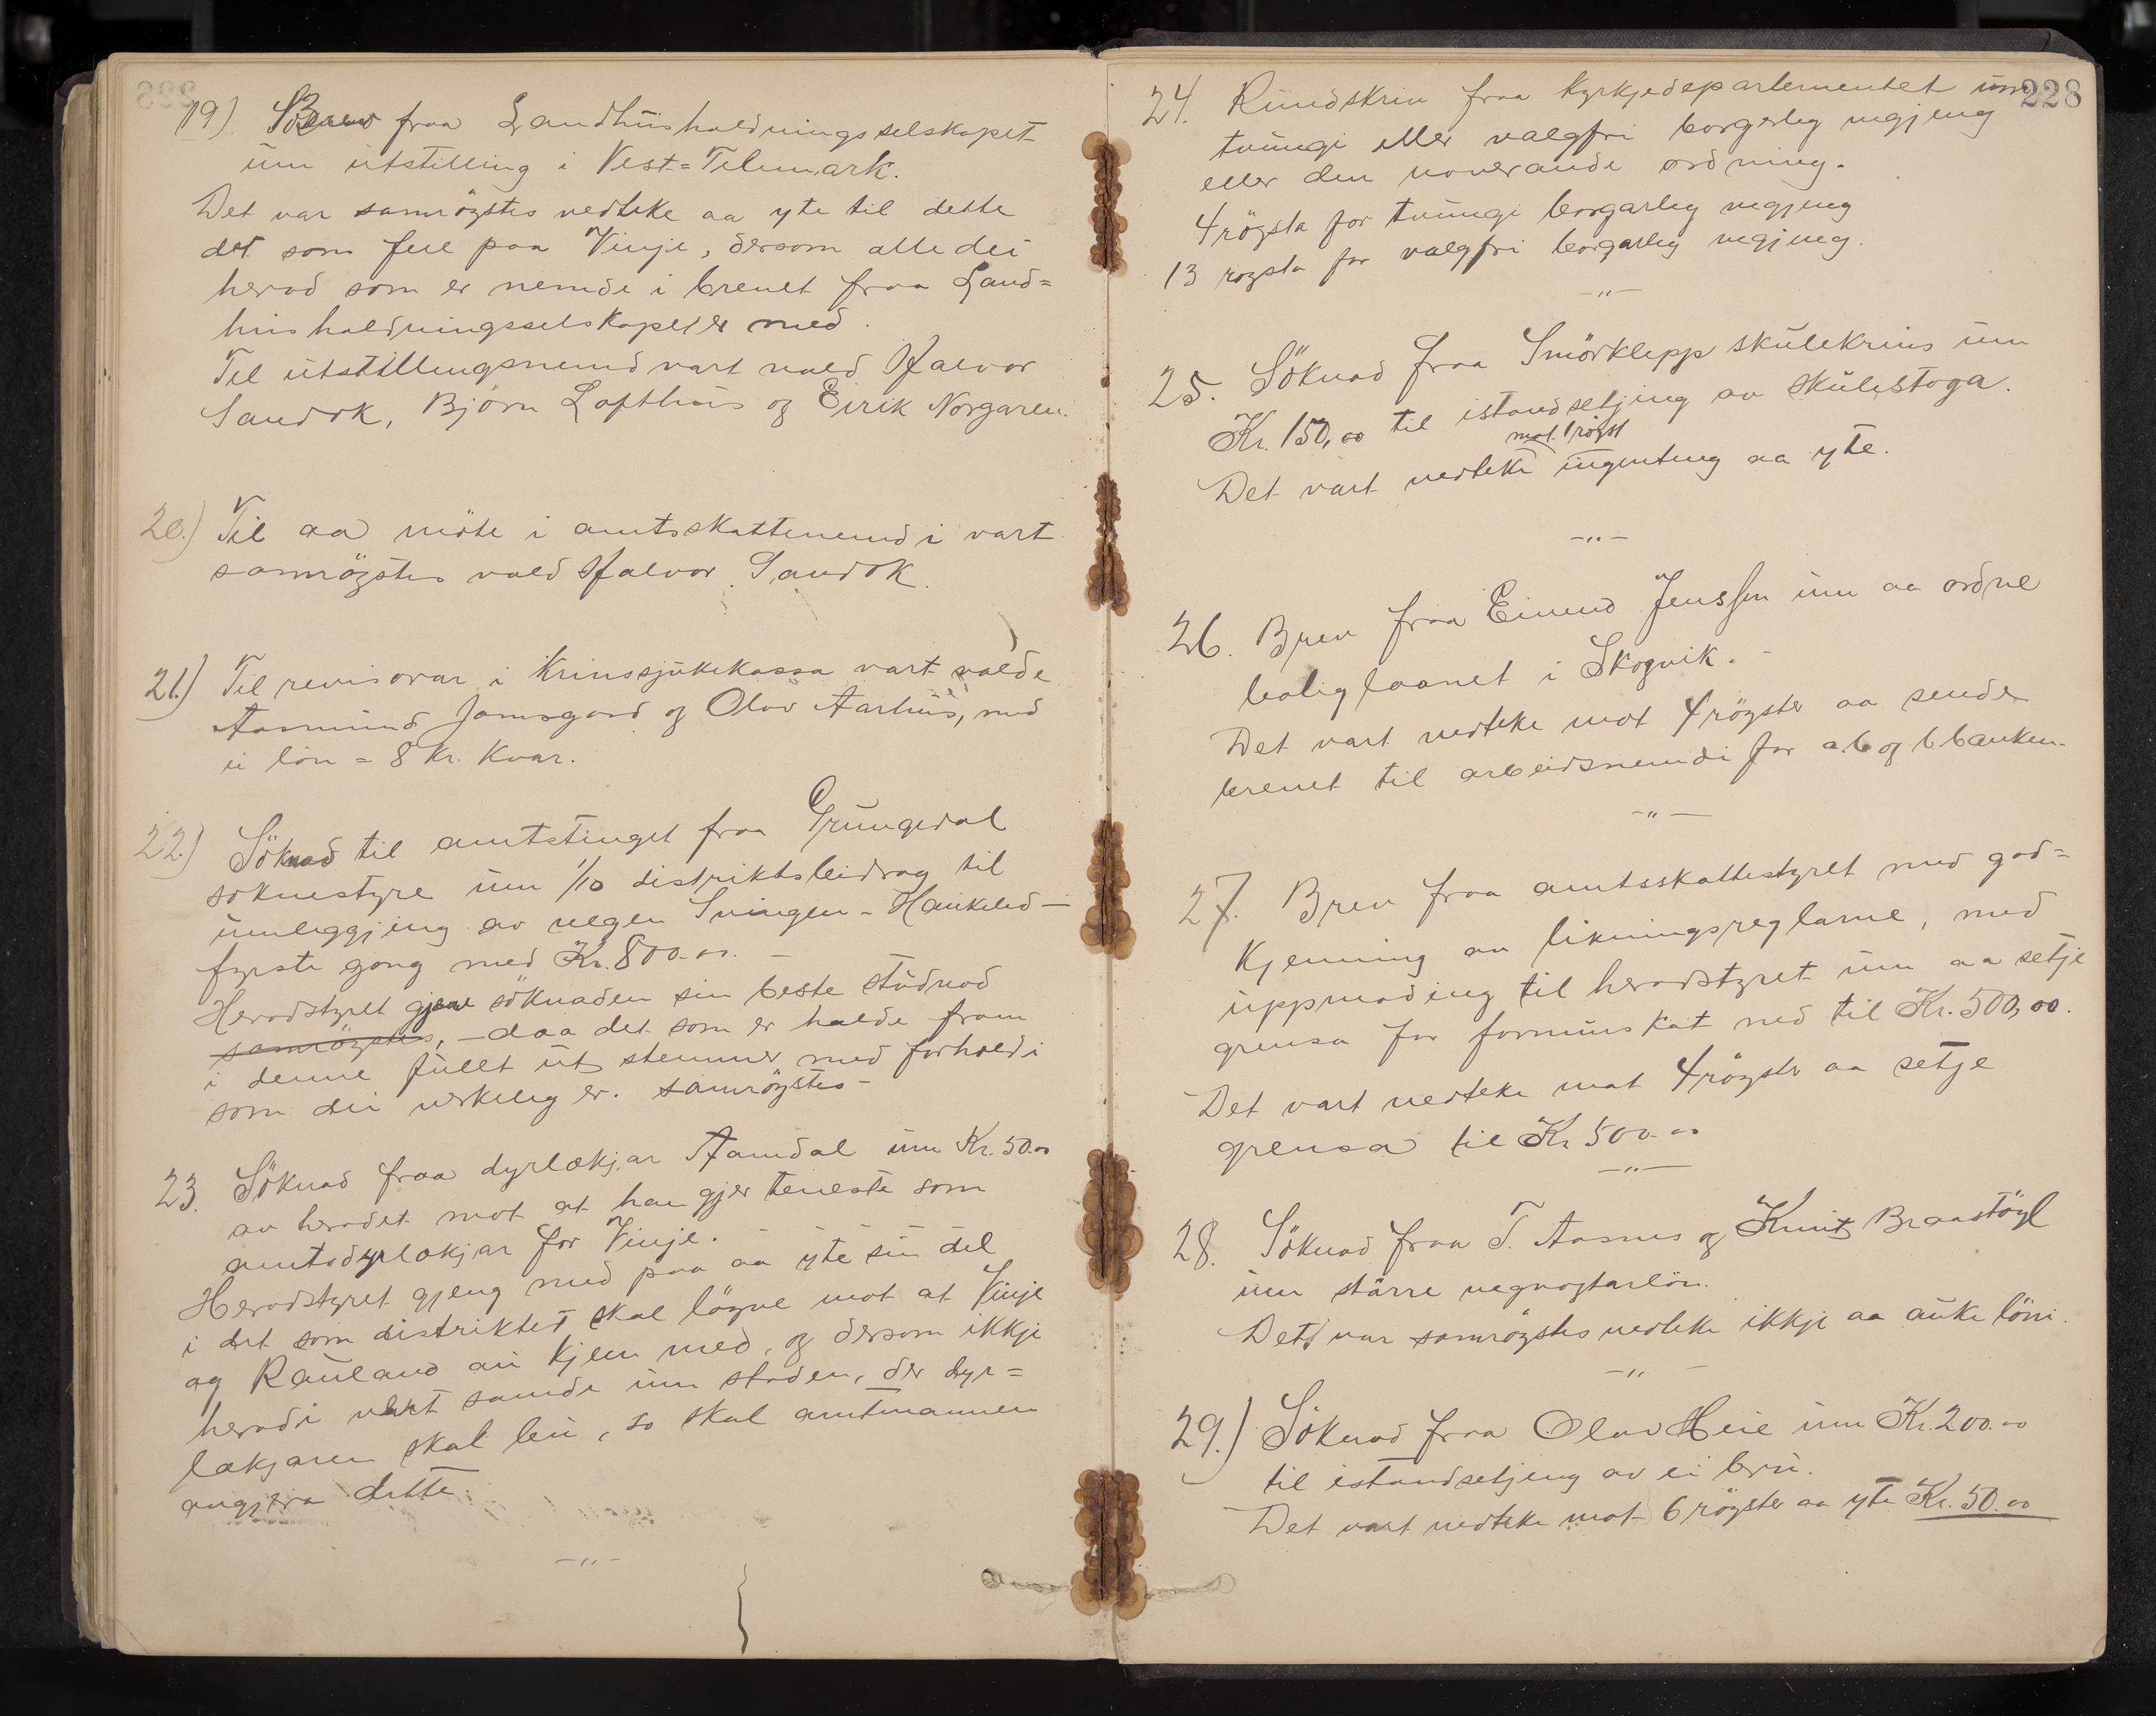 19). Brev fraa Landhusholdningsselskapet
um utstilling i Vest-Telemark.
Det var samrøystes vedteke aa yte til dette
det som fell paa Vinje, dersom alle dei
herad som er nemde i brevet fraa Land=
husholdningsselskapet er med.
Til utstillingsnemnd vart vald Halvor
Sandok, Bjørn Lofthus og Eirik Norgaren.
20.) Til aa møte i amtsskattenemndi vart
samröystes vald Halvor Sandok.
21.) Til revisorar i Krinssjukekassa vart valde
Aasmund Jamsgard og Olav Aarhus, med
ei løn = 8 Kr. kvar.
22.) Söknad til amtstinget fraa Grungedal
soknestyre um 1/10 distriktsbeidrag til
umleggjing av vegen Svingen - Haukelid -
fyrste gong med Kr. 800.00. -
Heradstyret gjeve söknaden sin beste studnad
samröystes, - daa det som er halde fram
i denne fullt ut stemmer med forholdi
som dei verkeleg er. samröystes -
23. Söknad fraa dyrlækjar Aamdal um Kr. 50.00
av heradet mot at han gjer teneste som
amtsdyrlækjar for Vinje.
Heradstyret gjeng med paa aa yte sin del
i det som distriktet skal löyve mot at Vinje
og Rauland au kjem med, og dersom ikkje
heradi vert samde um staden, der dyr=
lækjaren skal bu, so skal amtmannen
avgjera dette.
-"-
228
24. Rundskriv fraa Kyrkjedepartementet um
tvungi eller valgfri borgerleg vigjeng
eller den noverande ordning.
4 röysta for tvungi borgarleg vigjeng
13 röysta for valgfri borgarleg vigjeng.
-"-
25. Söknad fraa Smörklepp skulekrins um
Kr. 150,00 til istandsetjing av skulestoga.
mot 1 röyst
Det vart vedteke ingenting aa yte.
-"-
26. Brev fraa Eivind Jenssen um aa ordne
boliglaanet i Skogvik. -
Det vart vedteke mot 4 röyster aa sende
brevet til arbeidsnemdi for a.b og b.banken.
-"-
27. Brev fraa amtsskattestyret med god=
kjenning av likningsreglarne, med
uppmoding til heradstyret um aa setje
grensa for formuskat ned til Kr. 500,00.
Det vart vedteke mot 4 röyster aa setje
grensa til Kr 500.00
-"-
28. Söknad fraa T. Aasnes og Knut Braastöyl
um större vegvogtarlön.
Det var samröystes vedteke ikkje aa auke löni.
-"-
29.) Söknad fraa Olav Heie um Kr. 200.00
til istandsetjeng av ei bru.
Det vart vedteke mot 6 röyster aa yte Kr. 50.00